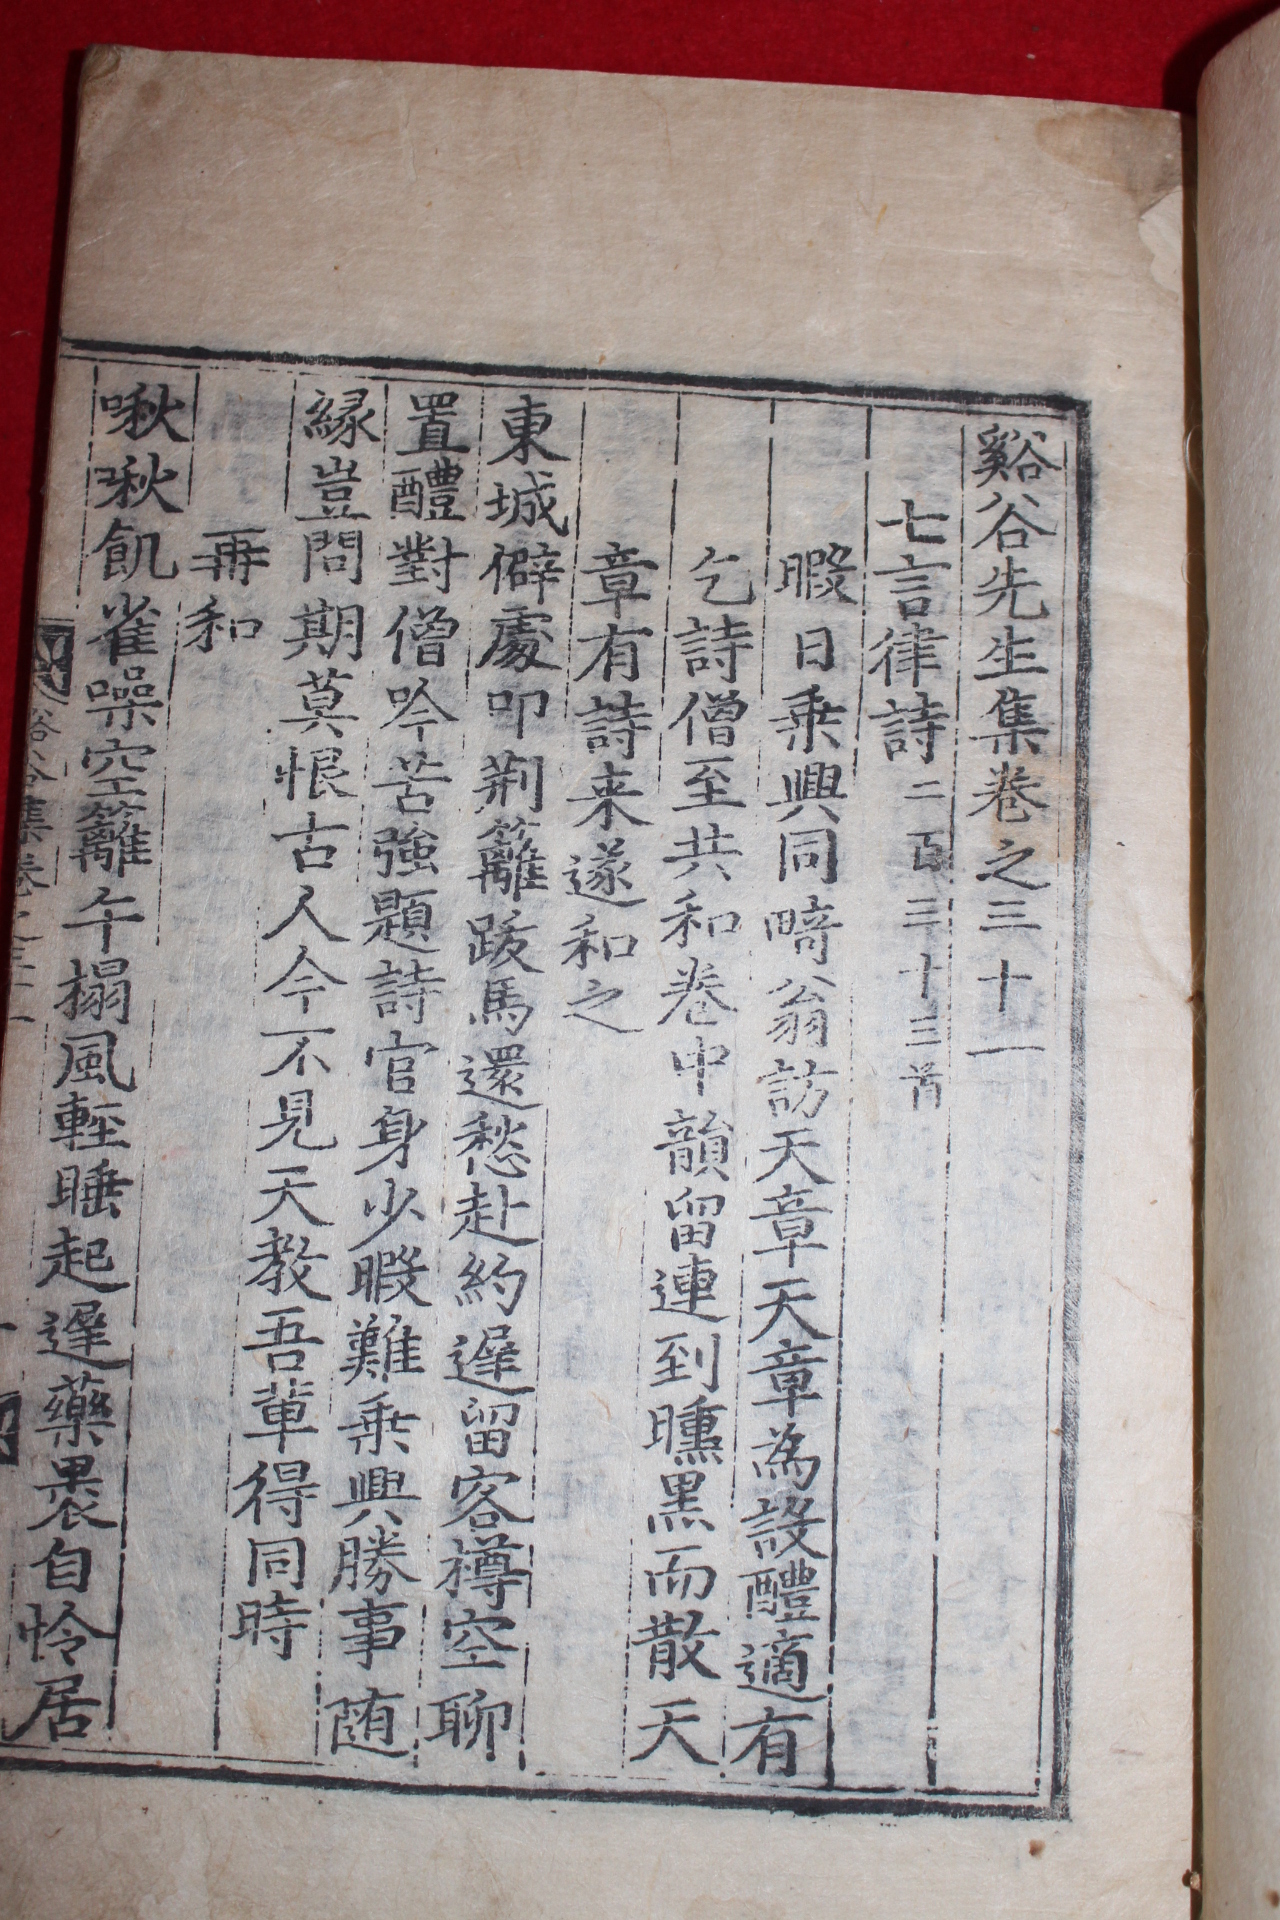 谿谷先生集卷之三十一
七言律詩二百三十三首
暇日乗興同畸翁訪天章天章為設醴適有
乞詩僧至共和卷中韻留連到曛黒而散天
章有詩来遂和之
東城僻處叩荆籬跋馬還愁赴約遲留客樽空聊
置醴對僧吟苦強題詩官身少暇難乗興勝事随
縁豈問期莫恨古人今不見天教吾軰得同時
再和
啾啾飢雀噪空籬午榻風輕睡起遲藥裹自怜居
谷集卷